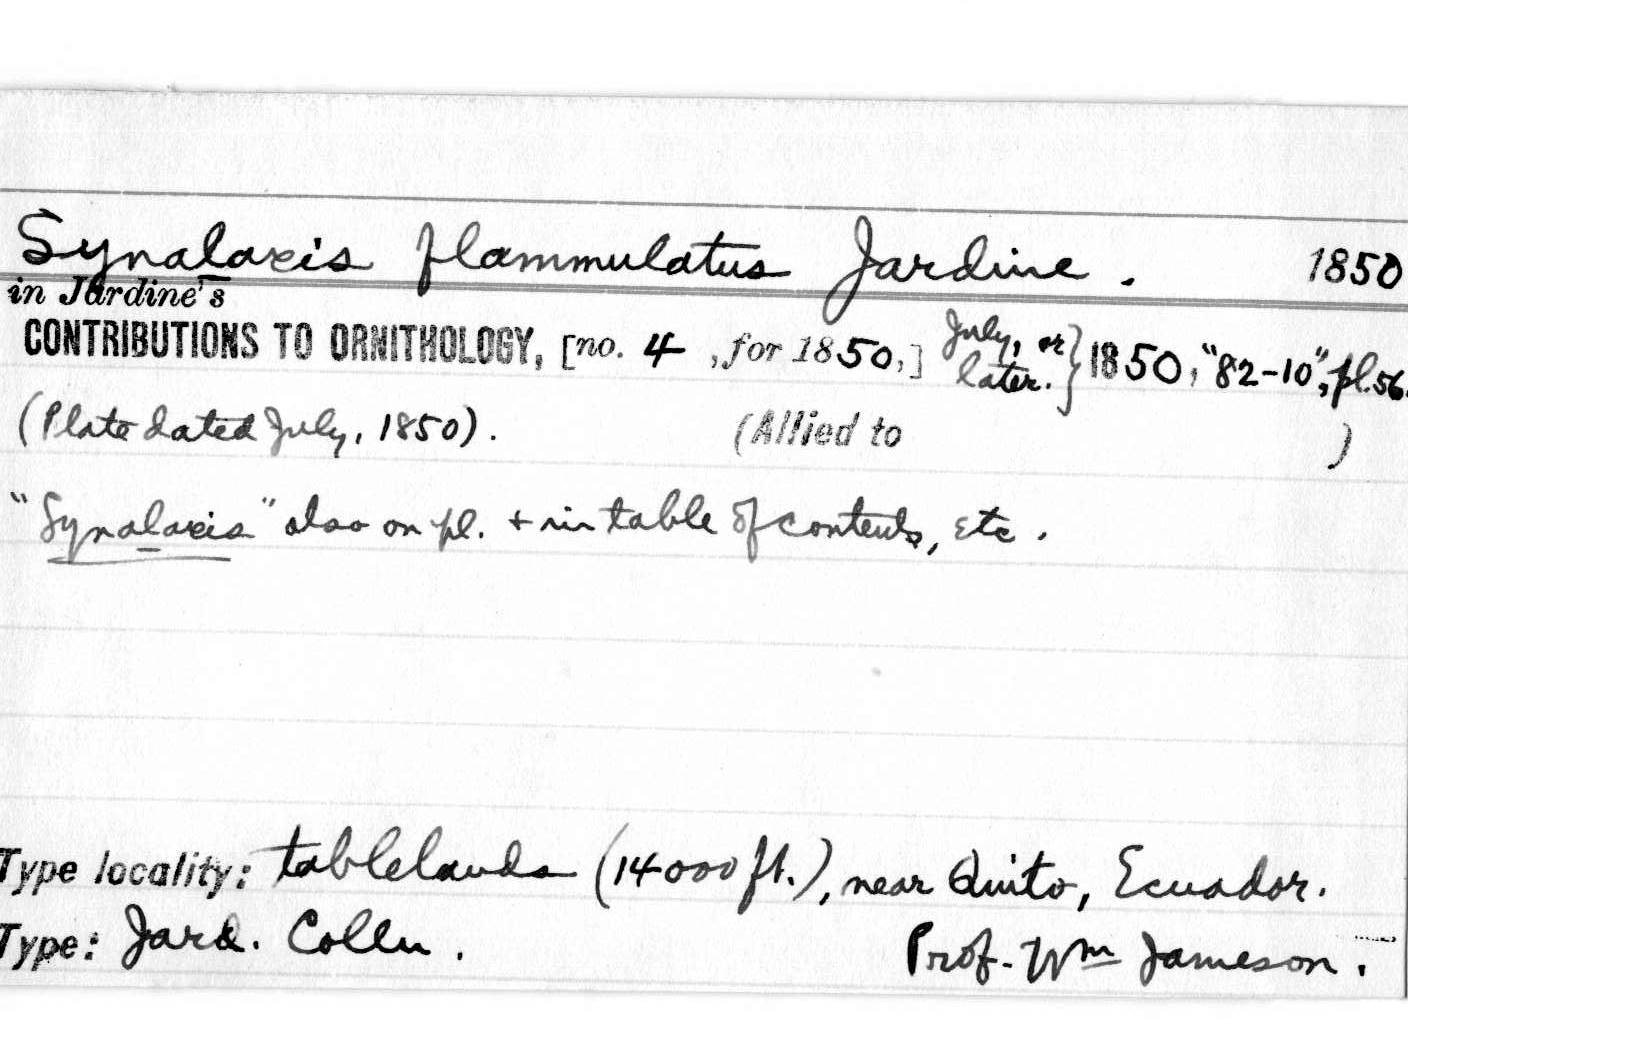 Synalaxis flammulatus Jardine. 1850
in Jardine's
CONTRIBUTIONS TO ORNITHOLOGY, [no. 4, for 1850,] July, or later.} 1850, "82-10", pl.56.
(Plate dated July, 1850). (Allied to )
"Synalaxis" also on pl. + in table of contents, etc.
Type locality: tablelands (14000 ft.), near Quito, Ecuador.
Type: Jard. Colln. Prof. Wm Jameson.